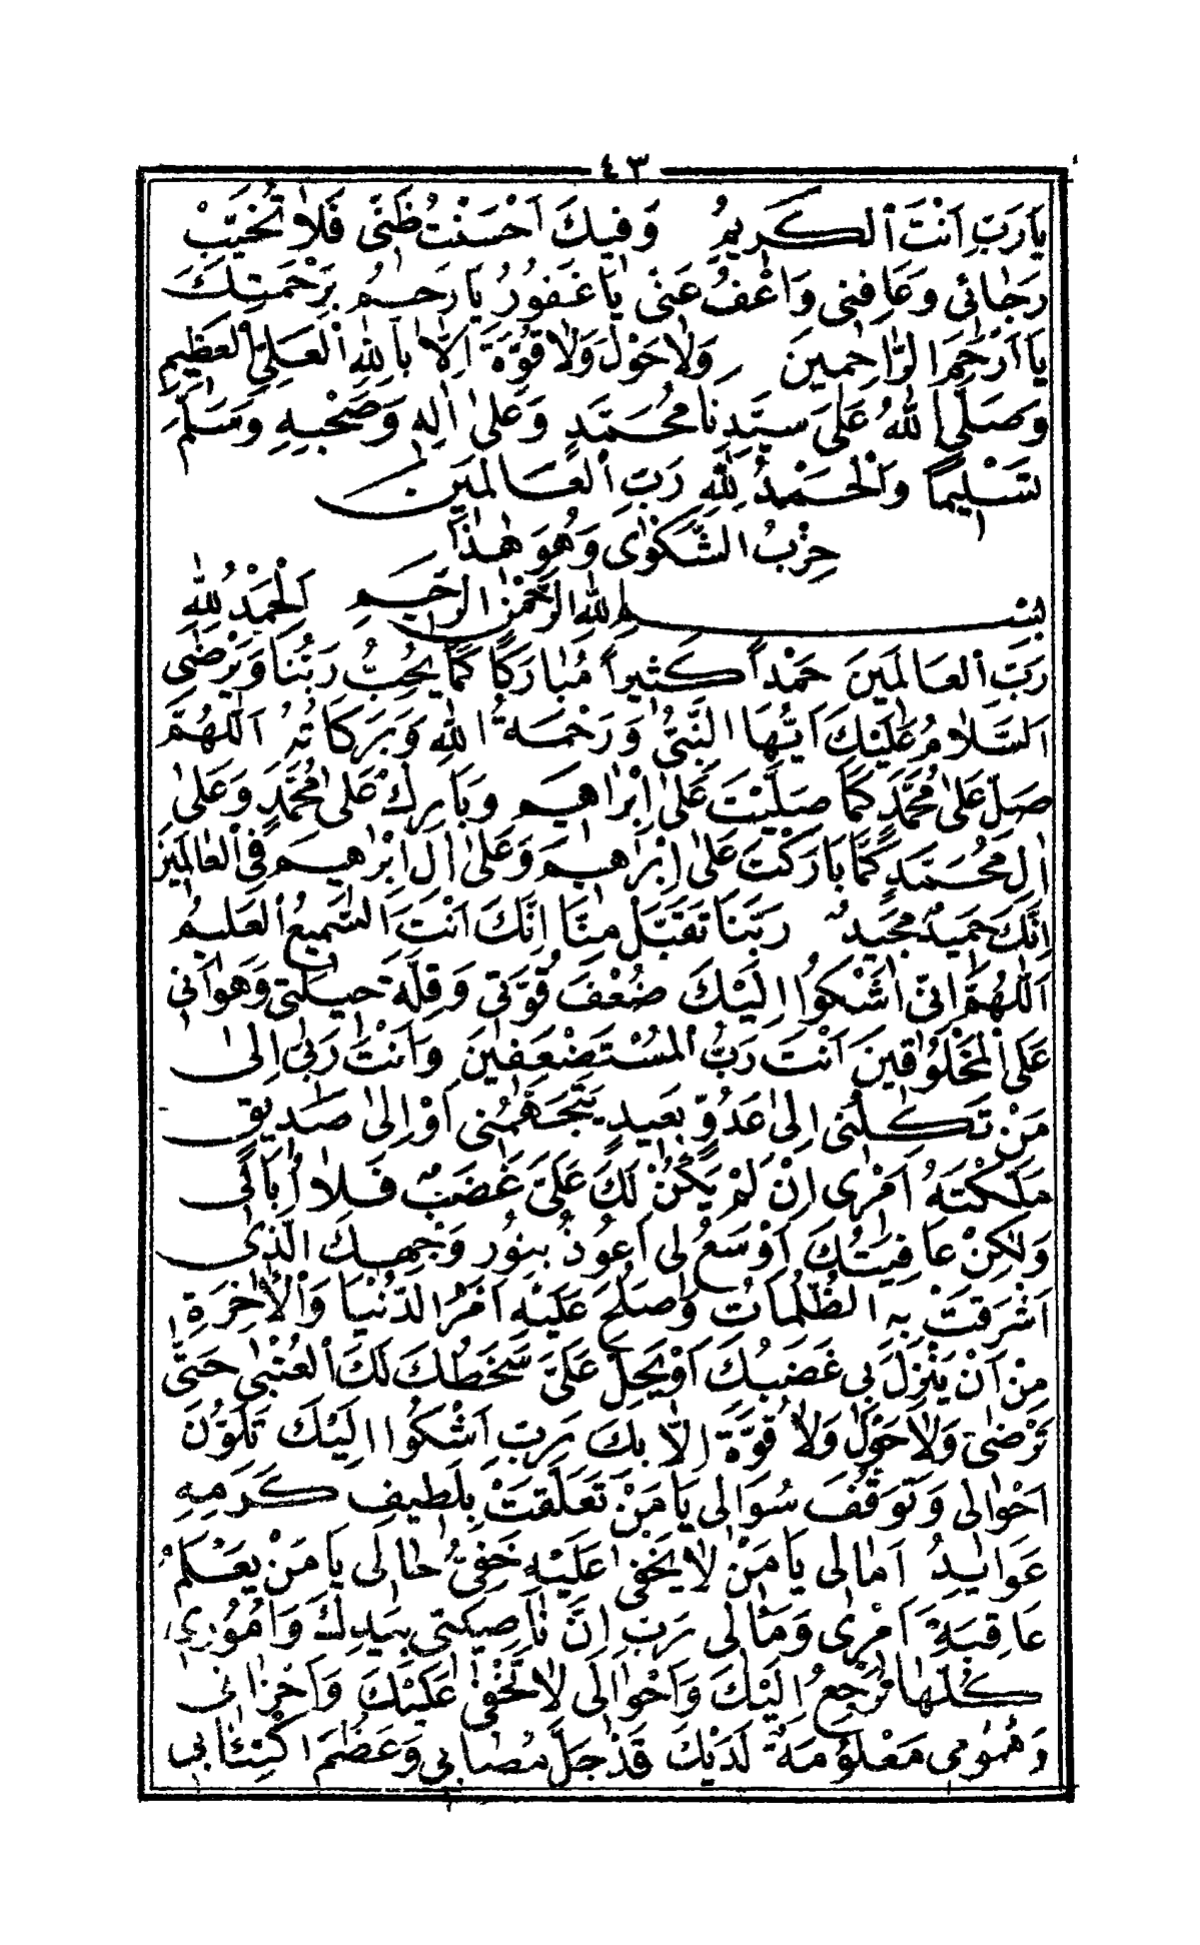 ٤٣
يَارَبِّ اَنْتَ الْكَرِيمُ وَفِيكَ اَحْسَنْتُ ظَنِّى فَلَا تُخَيِّبْ
رَجَائِى وَعَافِنِى وَاعْفُ عَنِّى يَاغَفُورُ يَارَحِيمُ بِرَحْمَتِكَ
يَااَرْحَمَ الرَّاحِمِينَ وَلَاحَوْلَ وَلَاقُوَّةَ اِلَّا بِاللّٰهِ الْعَلِيِّ الْعَظِيمِ
وَصَلَّى اللّٰهُ عَلَى سَيِّدِنَا مُحَمَّدٍ وَعَلىٰ اٰلِهِ وَصَحْبِهِ وَسَلَّمَ
تَسْلِيمًا وَالْحَمْدُ لِلّٰهِ رَبِّ الْعَالَمِينَ
حِزْبُ الشَّكْوٰى وَهُوَ هٰذَا
بِسْمِ اللّٰهِ الرَّحْمٰنِ الرَّحِيمِ اَلْحَمْدُ لِلّٰهِ
رَبِّ الْعَالَمِينَ حَمْدًا كَثِيرًا مُبَارَكًا كَمَا يُحِبُّ رَبُّنَا وَيَرْضٰى
اَلسَّلَامُ عَلَيْكَ اَيُّهَا النَّبِيُّ وَرَحْمَةُ اللّٰهِ وَبَرَكَاتُهُ اَللّٰهُمَّ
صَلِّ عَلىٰ مُحَمَّدٍ كَمَا صَلَّيْتَ عَلىٰ اِبْرَاهِيمَ وَبَارِكْ عَلىٰ مُحَمَّدٍ وَعَلىٰ
اٰلِ مُحَمَّدٍ كَمَا بَارَكْتَ عَلىٰ اِبْرٰهِيمَ وَعَلىٰ اٰلِ اِبْرٰهِيمَ فِى الْعَالَمِينَ
اِنَّكَ حَمِيدٌ مَجِيدٌ رَبَّنَا تَقَبَّلْ مِنَّا اِنَّكَ اَنْتَ السَّمِيعُ الْعَلِيمُ
اَللّٰهُمَّ اِنِّى اَشْكُوا اِلَيْكَ ضُعْفَ قُوَّتِى وَقِلَّةَ حِيلَتِى وَهَوَانِى
عَلَى الْمَخْلُوقِينَ اَنْتَ رَبُّ الْمُسْتَضْعَفِينَ وَاَنْتَ رَبِّى اِلىٰ
مَنْ تَكِلُنِى اِلىٰ عَدُوٍّ بَعِيدٍ يَتَجَهَّمُنِى اَوْ اِلىٰ صَدِيقٍ
مَلَكْتَهُ اَمْرِى اِنْ لَمْ يَكُنْ لَكَ عَلَيَّ غَضَبٌ فَلَا اُبَالِى
وَلٰكِنْ عَافِيَتُكَ اَوْسَعُ لِى اَعُوذُ بِنُورِ وَجْهِكَ الَّذِى
اَشْرَقَتْ بِهِ الظُّلُمَاتُ وَصَلُحَ عَلَيْهِ اَمْرُ الدُّنْيَا وَالْاٰخِرَةِ
مِنْ اَنْ يَنْزِلَ بِى غَضَبُكَ اَوْ يَحِلَّ عَلَيَّ سَخَطُكَ لَكَ الْعُتْبٰى حَتّٰى
تَرْضٰى وَلَاحَوْلَ وَلَاقُوَّةَ اِلَّا بِكَ رَبِّ اَشْكُوا اِلَيْكَ تَلَوُّنَ
اَحْوَالِى وَتَوَقُّفَ سُوَالِى يَا مَنْ تَعَلَّقَتْ بِلَطِيفِ كَرَمِهِ
عَوَايِدُ اٰمَالِى يَا مَنْ لَا يَخْفٰى عَلَيْهِ خَفِيُّ حَالِى يَا مَنْ يَعْلَمُ
عَاقِبَةَ اَمْرِى وَمَالِى رَبِّ اِنَّ نَاصِيَتِى بِيَدِكَ وَاُمُورِى
كُلَّهَا تَرْجِعُ اِلَيْكَ وَاَحْوَالِى لَا تَخْفٰى عَلَيْكَ وَاَحْزَانِى
وَهُمُومِى مَعْلُومَةٌ لَدَيْكَ قَدْ جَلَّ مُصَابِى وَعَظُمَ اكْتِئَابِى